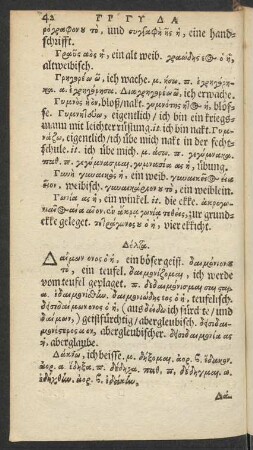 42 ΓΡ ΓΥ ΔΑ
ρόγραφον ου τὸ, und συγγραφὴ ῆς ἡ, eine hand-
schrifft.
Γραῦς αὸς ἡ, ein alt weib. γραώδης ὁ ἡ,
altweibisch.
Γρηγορέω ῶ, ich wache. μ. ήσω. π. ἐγρηγόρη-
κα. α. ἐγρηγόρησα. Διαγρηγορέω ῶ, ich erwache.
Γυμνὸς ὴ ὸν, bloß/nakt. γυμνότης ἡ. blös-
se. Γυμνητεύω, eigentlich/ ich bin ein kriegs-
mann mit leichter rüstung. it. ich bin nakt. Γυμ-
νάζω, eigentlich/ich übe mich nakt in der fecht-
schule. it. ich übe mich. μ. άσω. π. γεγύμνακα.
παθ. π. γεγύμνασμαι. γυμνασία ας ἡ, übung.
Γυνὴ γυναικὸς ἡ, ein weib. γυναικεῖος
weibisch. γυναικάριον ου τὸ, ein weiblein.
Γωνία ας ἡ, ein winkel. it. die ekke.
zu grund-
ekke geleget. τετράγωνος ὁ ἡ, vierekkicht.
Δέλτα.
Δαίμων ονος ὁ ἡ, ein böser geist. δαιμόνιον ου
τὸ, ein teufel. δαιμονίζομαι, ich werde
vom teufel geplaget. π.
δαιμονιώδης ὁ ἡ, teufelisch.
δεισιδαίμων ονος ὁ ἡ, (aus δείδω ich fürchte/ und
δαίμων,) geistfürchtig/ abergleubisch. δεισιδαι-
abergleubischer. δεισιδαιμονία ας
ἡ, aberglaube.
Δάκνω, ich beisse. μ. δήξομαι.
α. ἔδηξα. π. δέδηχα. παθ. π. δέδηγμαι. α.
ἐδήχθην.
Δα-